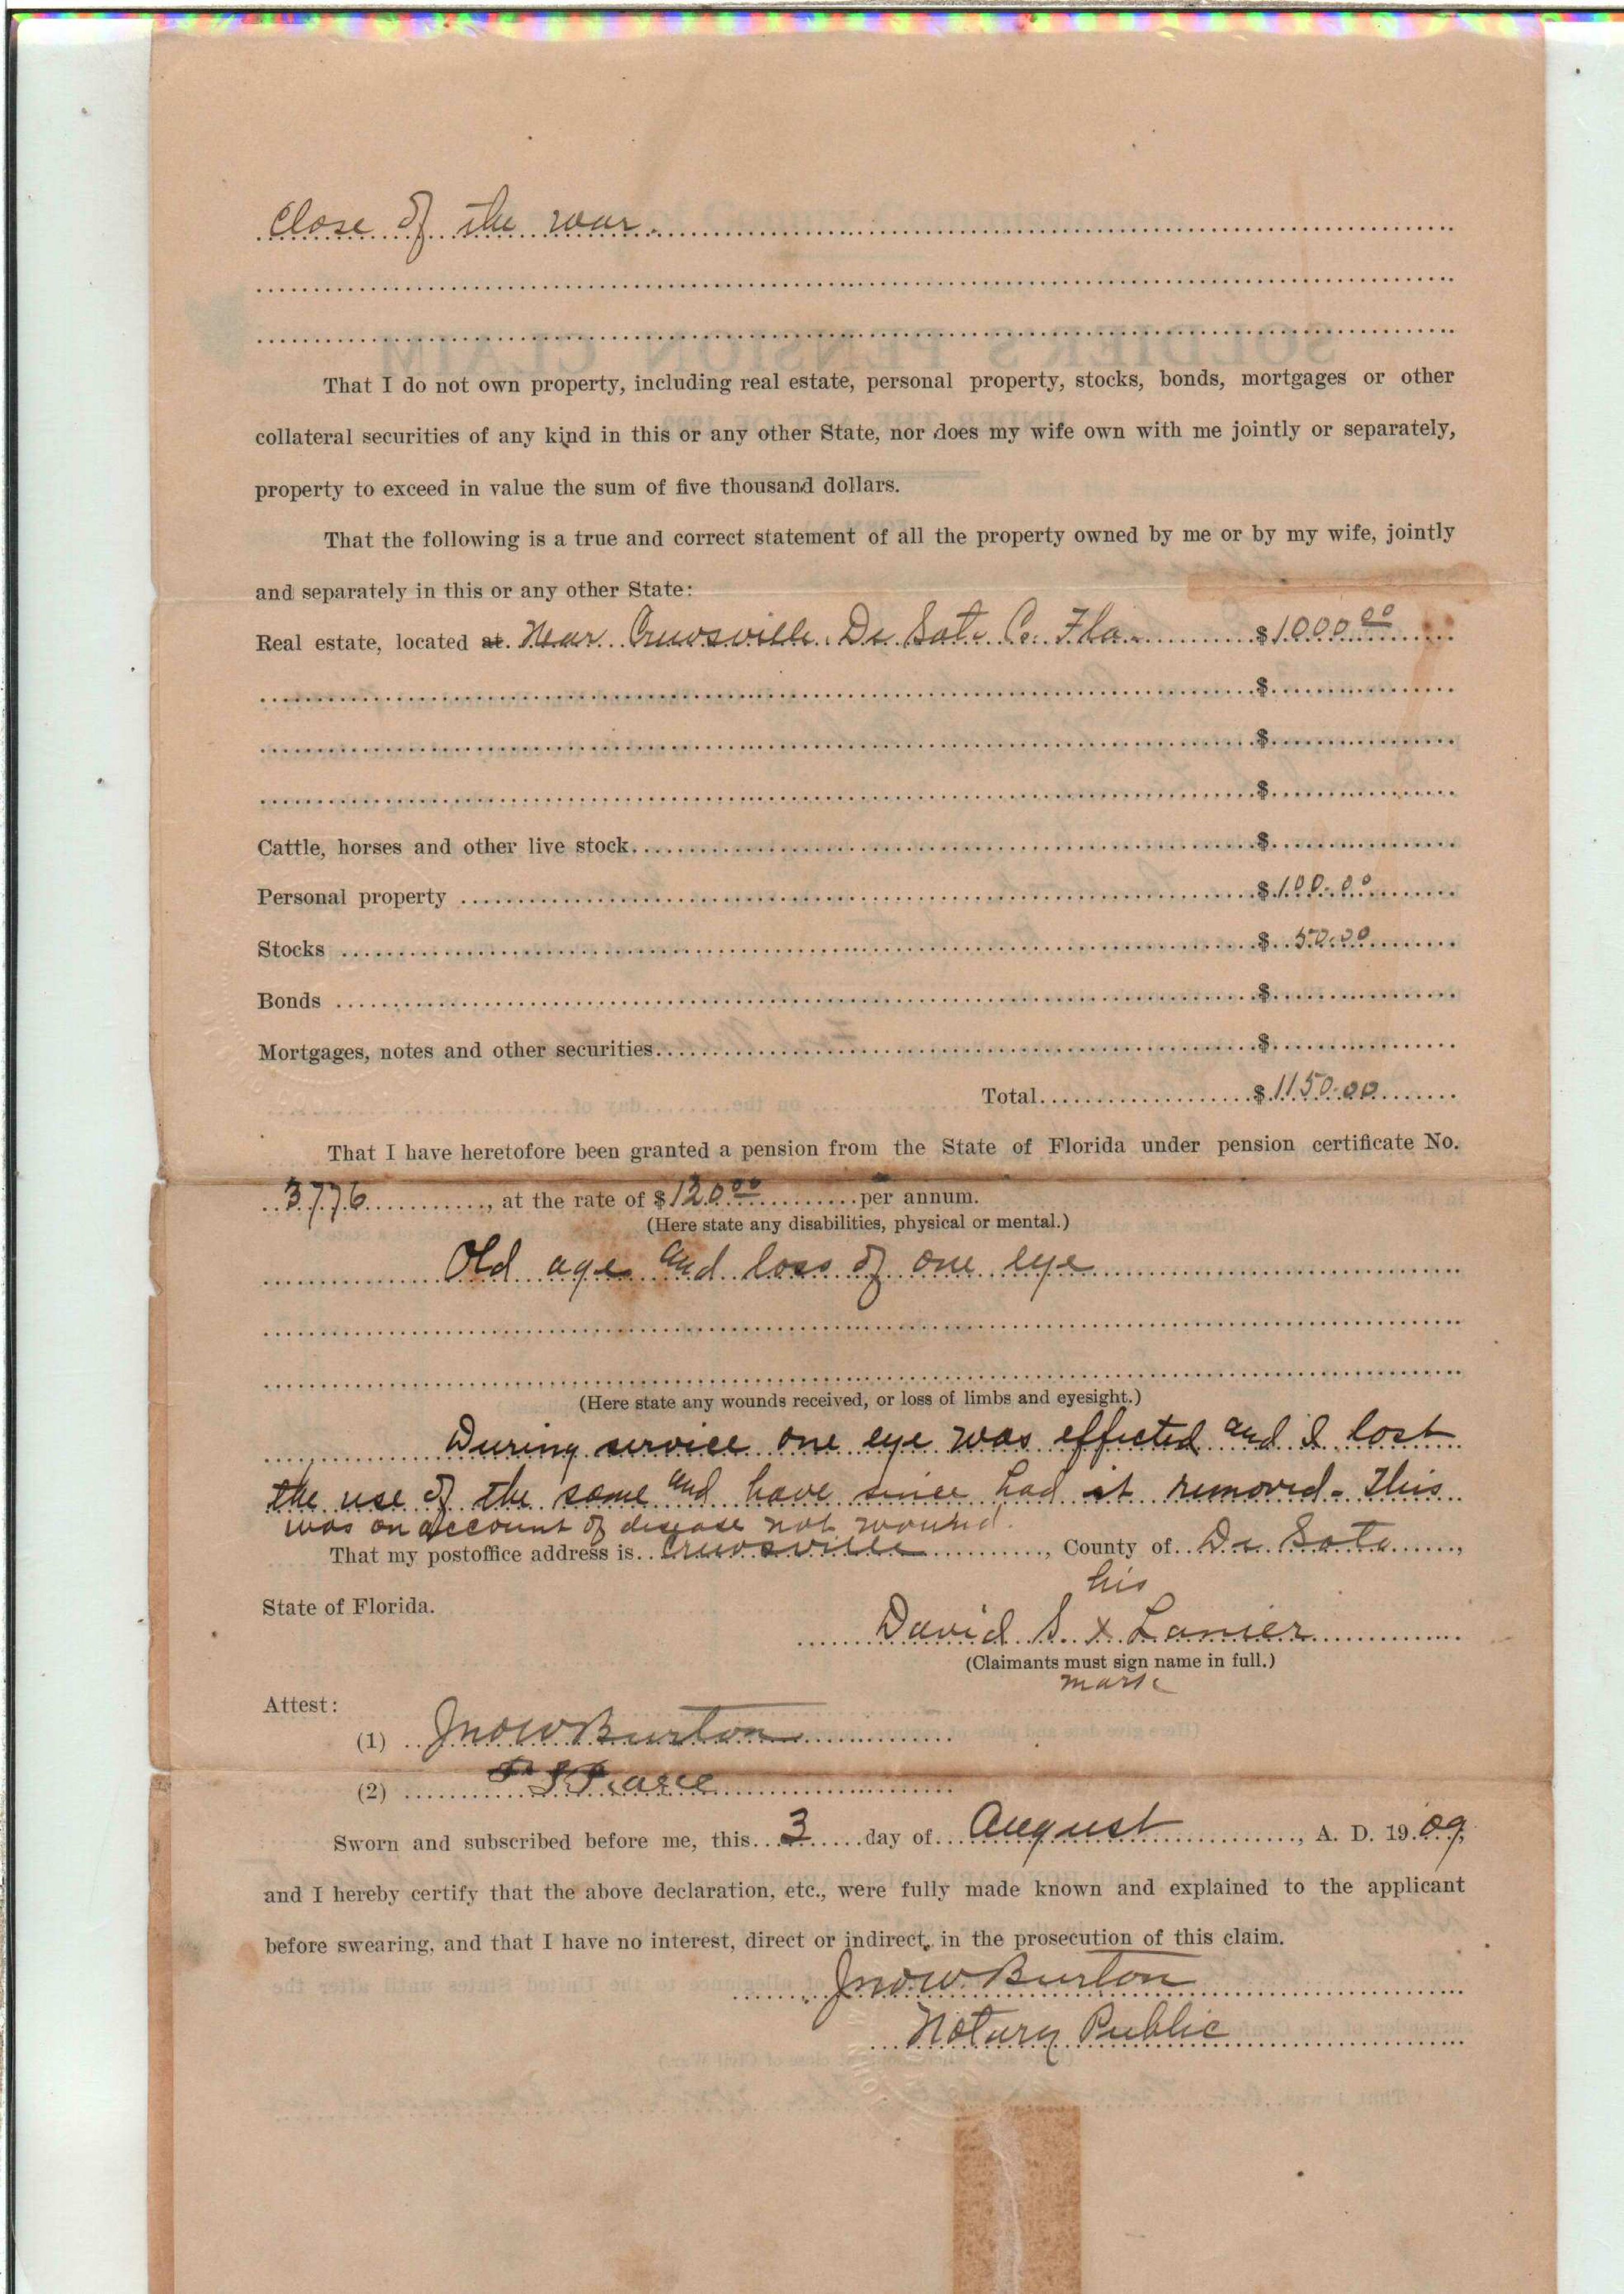 Close of the war.
That I do not own property, including real estate, personal property, stocks, bonds, mortgages or other
collateral securities of any kind in this or any other State, nor does my wife own with me jointly or separately,
property to exceed in value the sum of five thousand dollars.
That the following is a true and correct statement of all the property owned by me or by my wife, jointly
and separately in this or any other State:
Real estate, located at Near Crewsville De Soto Co. Fla $1000.00
$
$
$
Cattle, horses and other live stock $
Personal property $100.00
Stocks $50.00
Bonds $
Mortgages, notes and other securities $
Total $1150.00
That I have heretofore been granted a pension from the State of Florida under pension certificate No.
3776, at the rate of $120.00 per annum.
(Here state any disabilities, physical or mental.)
Old age and loss of one eye
(Here state any wounds received, or loss of limbs and eyesight.)
During service one eye was effected and I lost
the use of the same and have since had it removed - This
was on account of disease not wound.
That my postoffice address is Crewsville, County of De Soto,
State of Florida.
his
David S. x Lanier
(Claimants must sign name in full.)
mark
Attest:
(1) Jno W Burton
(2) Pearce
Sworn and subscribed before me, this 3 day of August, A. D. 1909,
and I hereby certify that the above declaration, etc., were fully made known and explained to the applicant
before swearing, and that I have no interest, direct or indirect, in the prosecution of this claim.
Jno W Burton
Notary Public